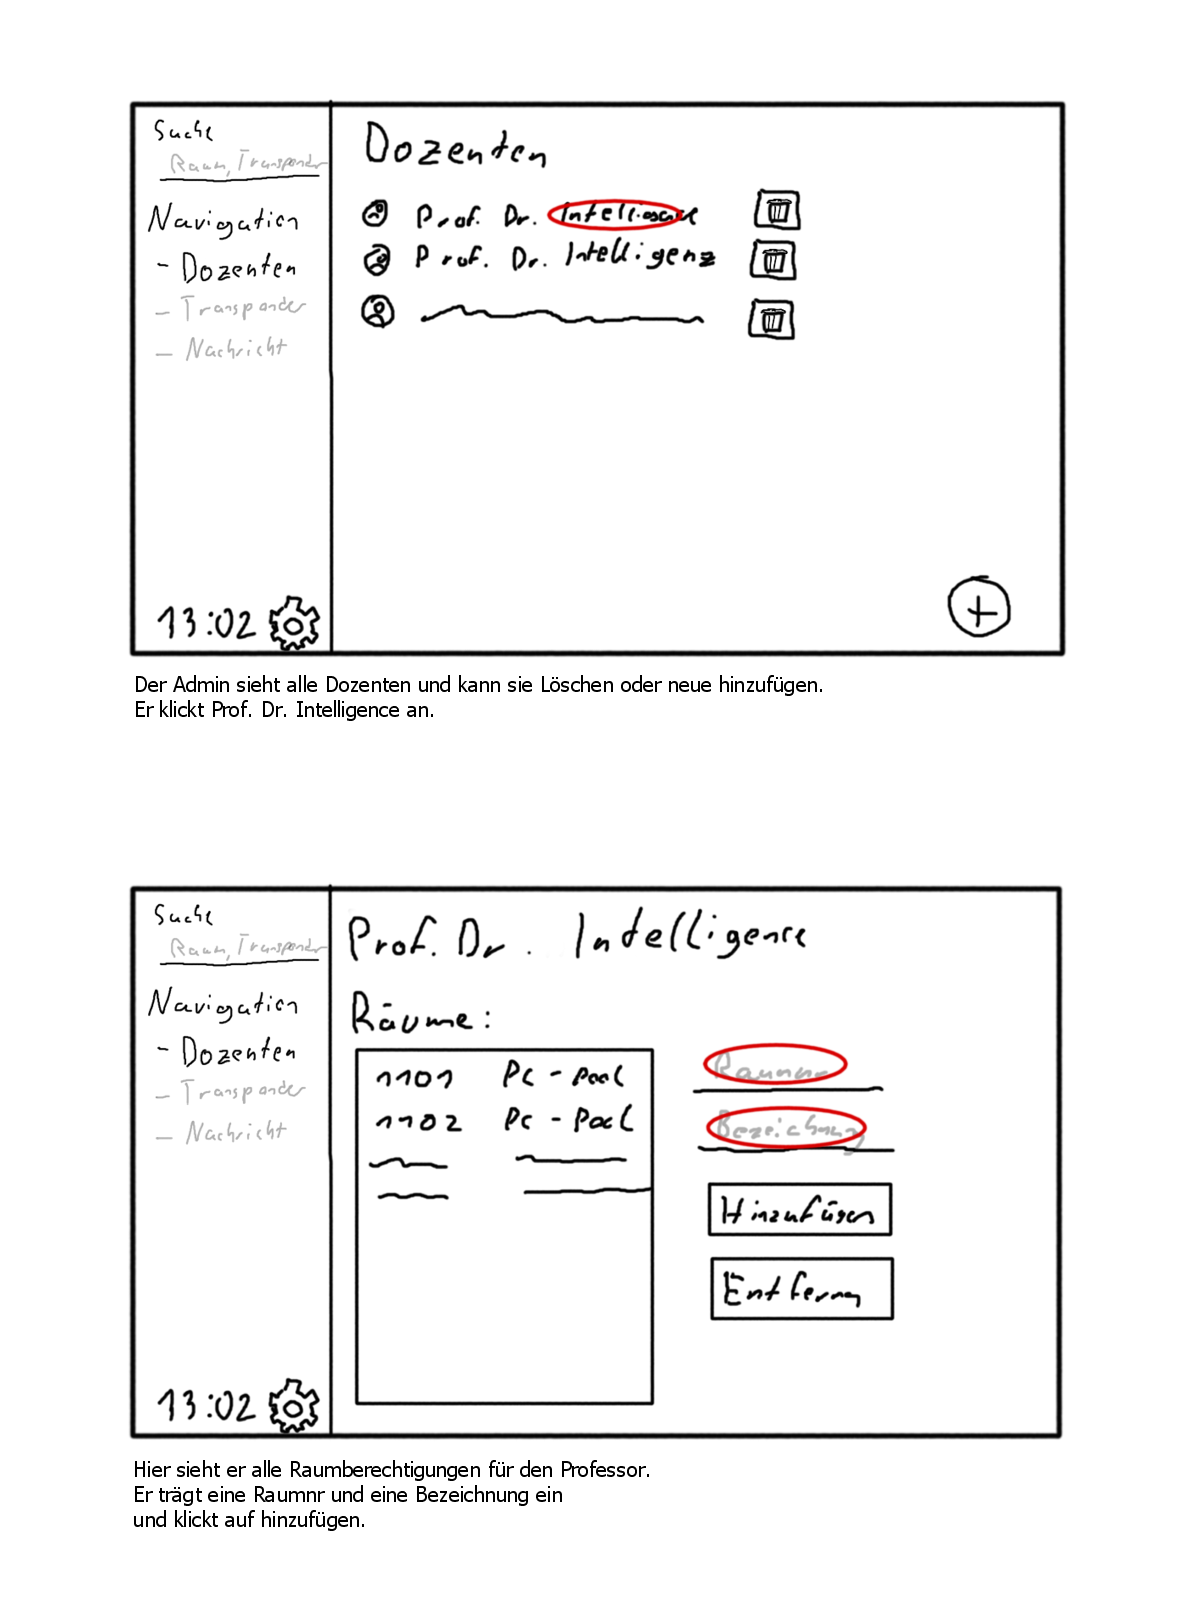 Suche
Raum, Transponder
Navigation
- Dozenten
- Transponder
- Nachricht
13:02
Dozenten
Prof. Dr. Intelligence
Prof. Dr. Intelligenz
+
Der Admin sieht alle Dozenten und kann sie Löschen oder neue hinzufügen.
Er klickt Prof. Dr. Intelligence an.
Suche
Raum, Transponder
Navigation
- Dozenten
- Transponder
- Nachricht
13:02
Prof. Dr. Intelligence
Räume:
1101 Pc - Pool
1102 Pc - Pool
Raumnr
Bezeichnung
Hinzufügen
Entfernen
Hier sieht er alle Raumberechtigungen für den Professor.
Er trägt eine Raumnr und eine Bezeichnung ein
und klickt auf hinzufügen.